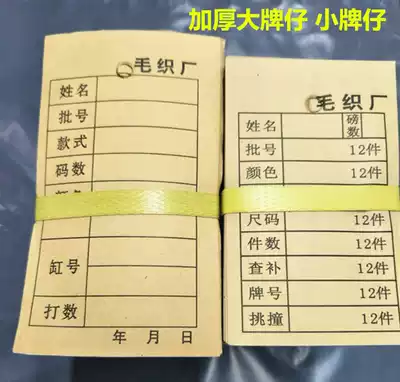 加厚大牌仔 小牌仔
毛织厂
姓名
批号
款式
码数
颜色
缸号
打数
年 月 日
毛织厂
姓名 磅数
批号 12件
颜色 12件
尺码 12件
件数 12件
查补 12件
牌号 12件
挑撞 12件